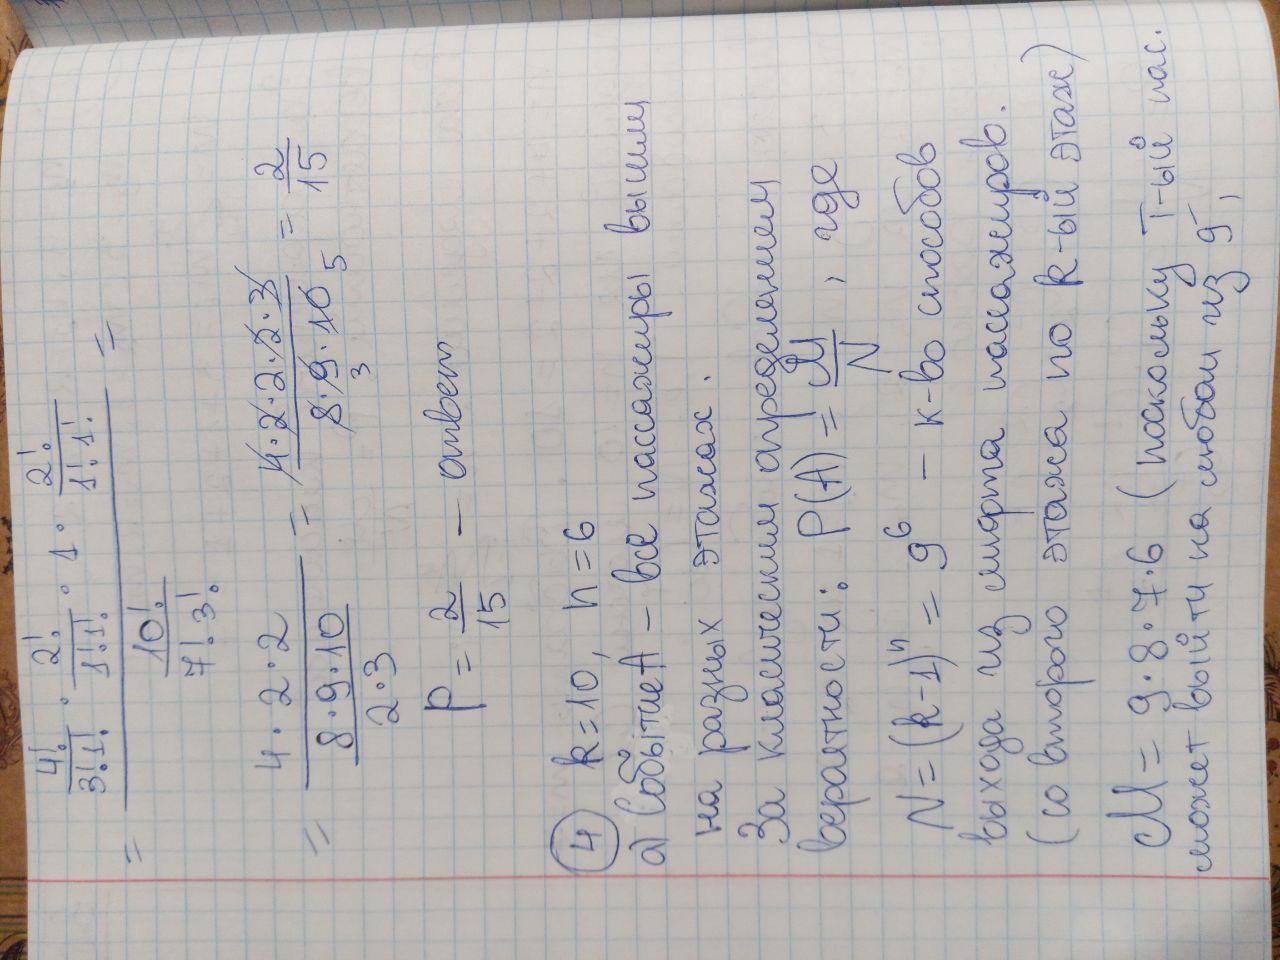 = (4!/(3!1!) · 2!/(1!1!) · 1 · 2!/(1!1!)) / (10!/(7!3!)) =
= (4·2·2) / ((8·9·10)/(2·3)) = (4·2·2·2·3)/(8·9·10) 3 5 = 2/15
P = 2/15 – ответ
4 k=10, n=6
а) Событие A – все пассажиры вышли
на разных этажах.
За класическим определением
вероятности: P(A) = M/N, где
N = (k-1)^n = 9^6 – к-во способов
выхода из лифта пассажиров.
(со второго этажа по k-ый этаж)
M = 9·8·7·6 (поскольку I-ый пас.
может выйти на любом из 9,